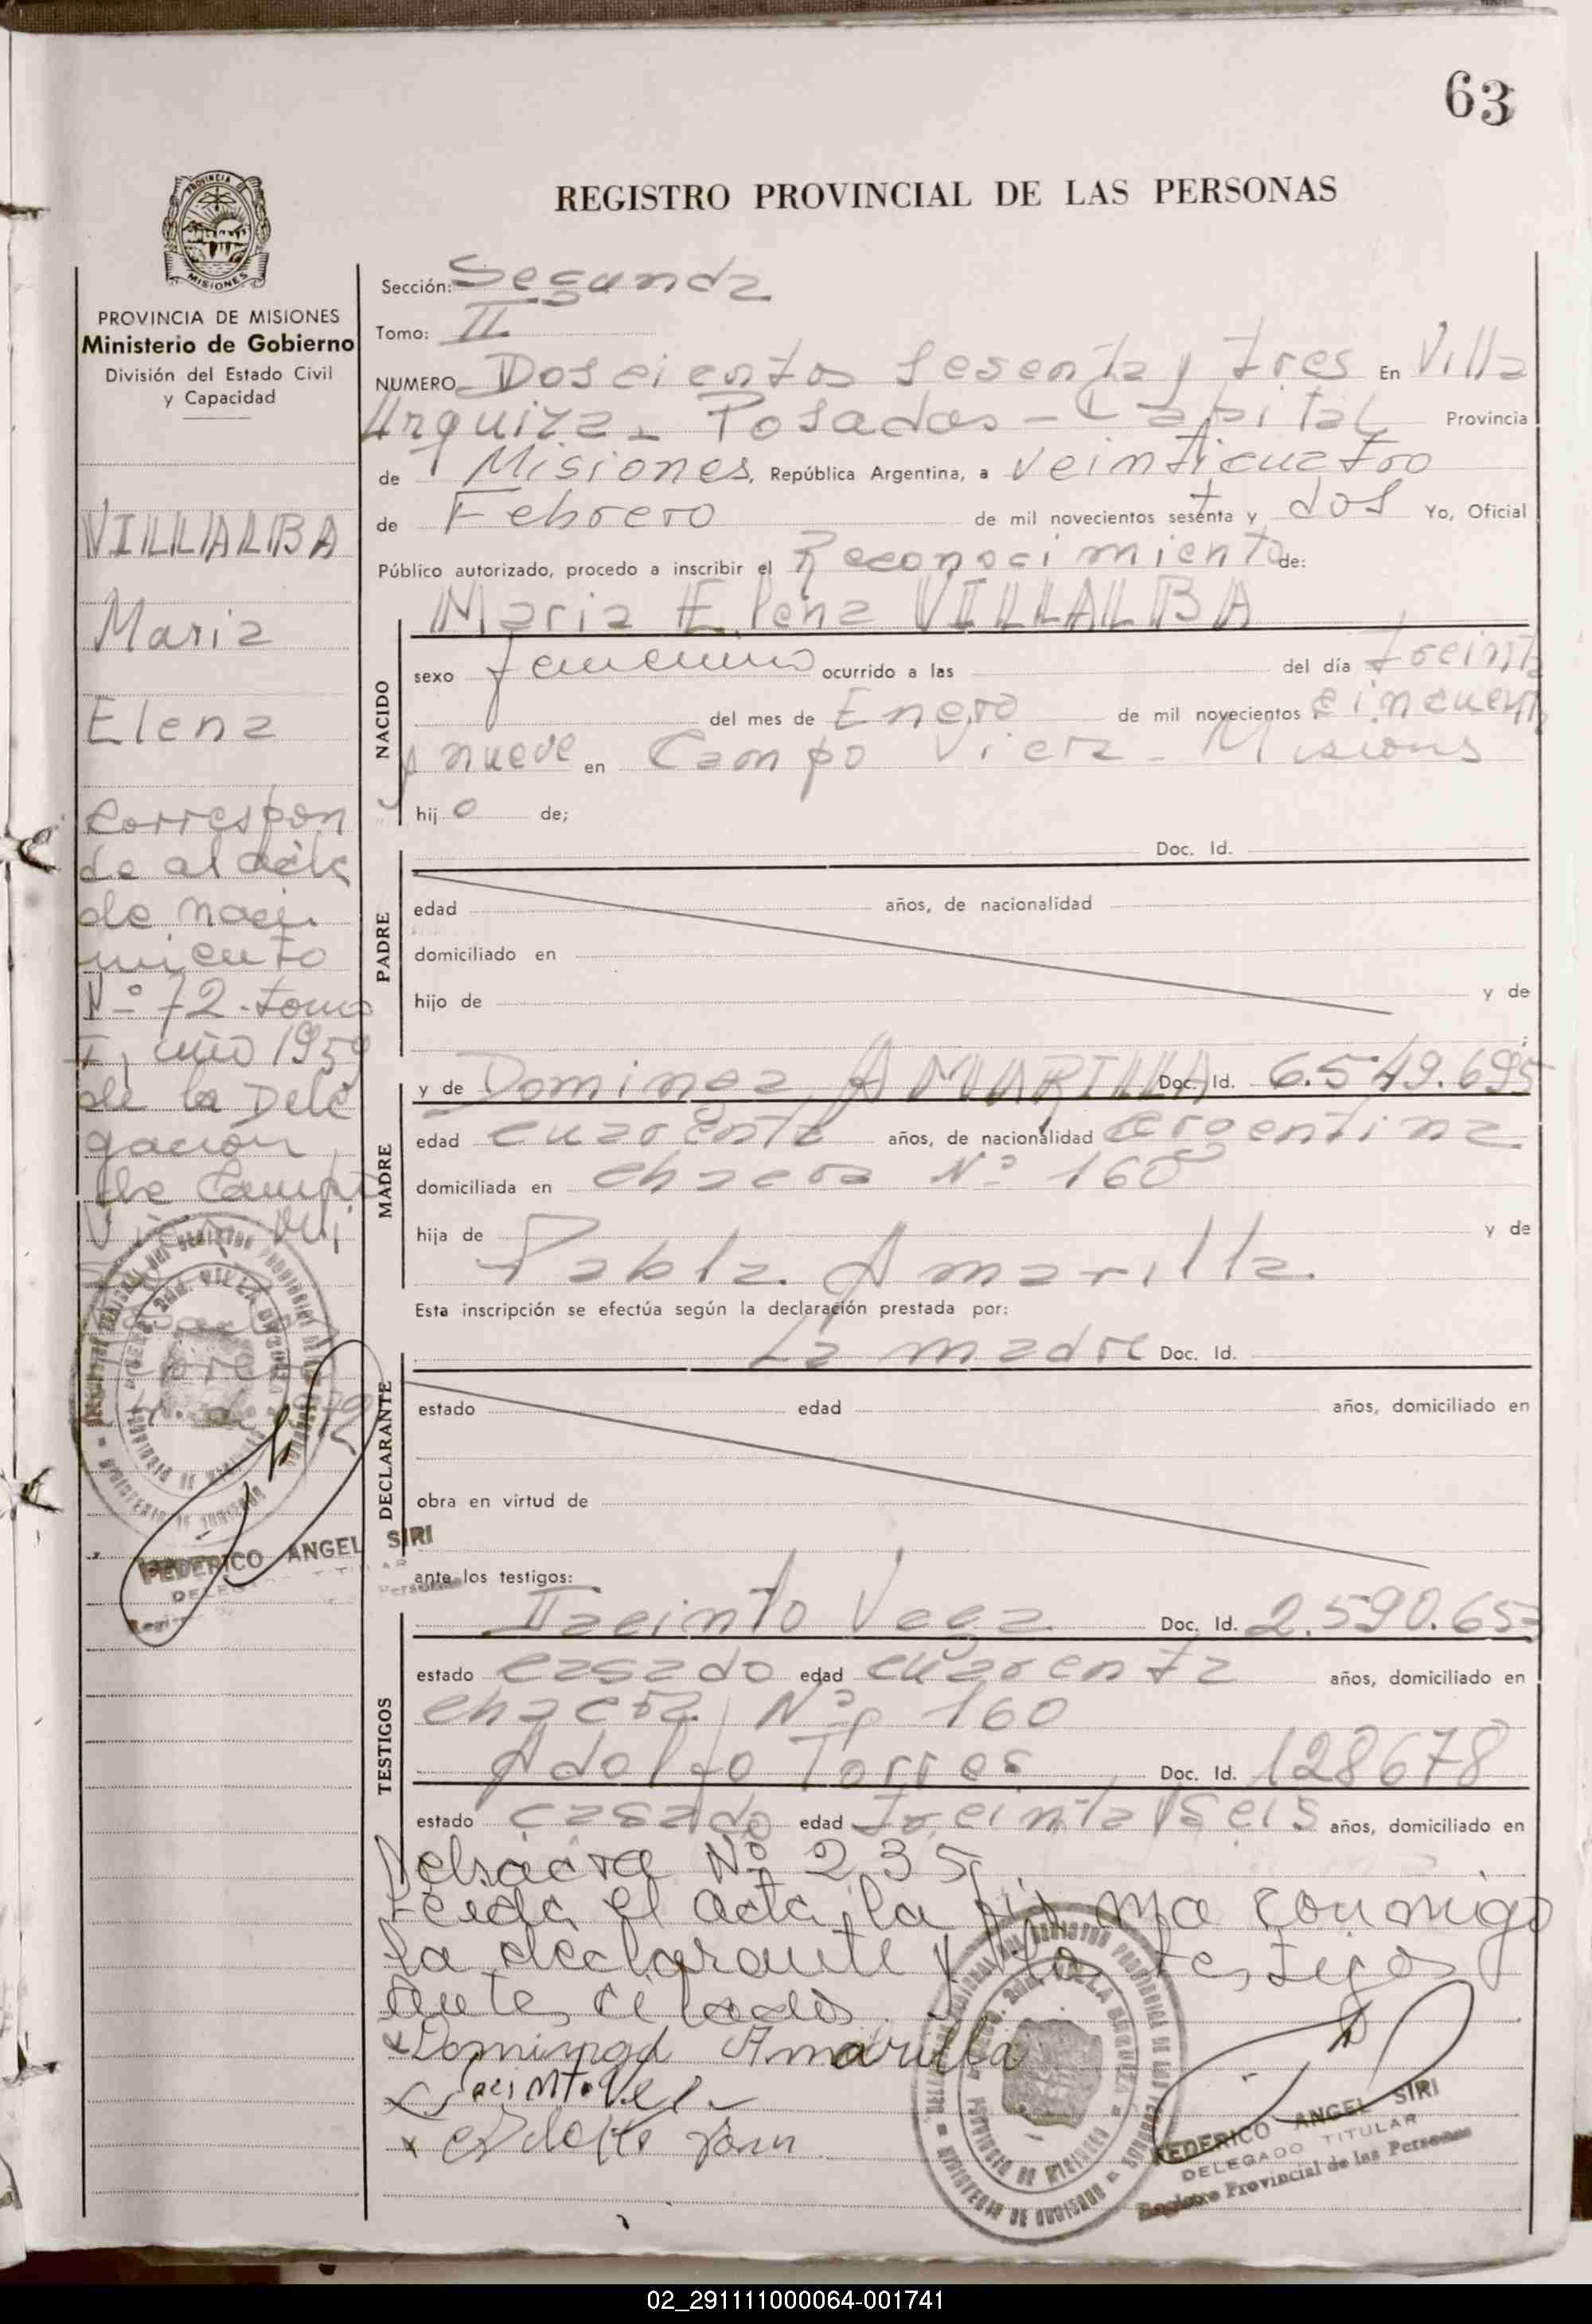 63
REGISTRO PROVINCIAL DE LAS PERSONAS
PROVINCIA
MISIONES
PROVINCIA DE MISIONES
Ministerio de Gobierno
División del Estado Civil
y Capacidad
VILLALBA
Maria
Elena
Correspon
de al acta
de naci
miento
Nº 72 tomo
I, año 1959
de la Dele
gación
de Campo
Viera
FEDERICO ANGEL SIRI
Sección: Segunda
Tomo: II
NUMERO Doscientos Sesenta y tres En Villa
Urquiza - Posadas - Capital Provincia
de Misiones, República Argentina, a veinticuatro
de Febrero de mil novecientos setenta y dos Yo, Oficial
Público autorizado, procedo a inscribir el Reconocimiento de:
Maria Elena VILLALBA
NACIDO
sexo femenino ocurrido a las del día treinta
del mes de Enero de mil novecientos cincuent
y nueve en Campo Viera - Misiones
hij o de;
PADRE
Doc. Id.
edad años, de nacionalidad
domiciliado en
hijo de y de
MADRE
y de Dominga AMARILLA Doc. Id. 6.549.695
edad cuarenta años, de nacionalidad argentina
domiciliada en chacra Nº 160
hija de y de
Pabla Amarilla.
Esta inscripción se efectúa según la declaración prestada por:
DECLARANTE
La madre Doc. Id.
estado edad años, domiciliado en
obra en virtud de
ante los testigos:
TESTIGOS
Jacinto Vega Doc. Id. 2.590.65
estado casado edad cuarenta años, domiciliado en
chacra Nº 160
Adolfo Torres Doc. Id. 128678
estado casado edad treinta y seis años, domiciliado en
chacra Nº 235
Leida el acta, la firma conmigo
la declarante y los testigos
ante citados.
x Dominga Amarilla
x Jacinto
x
FEDERICO ANGEL SIRI
DELEGADO TITULAR
Registro Provincial de las Personas
02_291111000064-001741